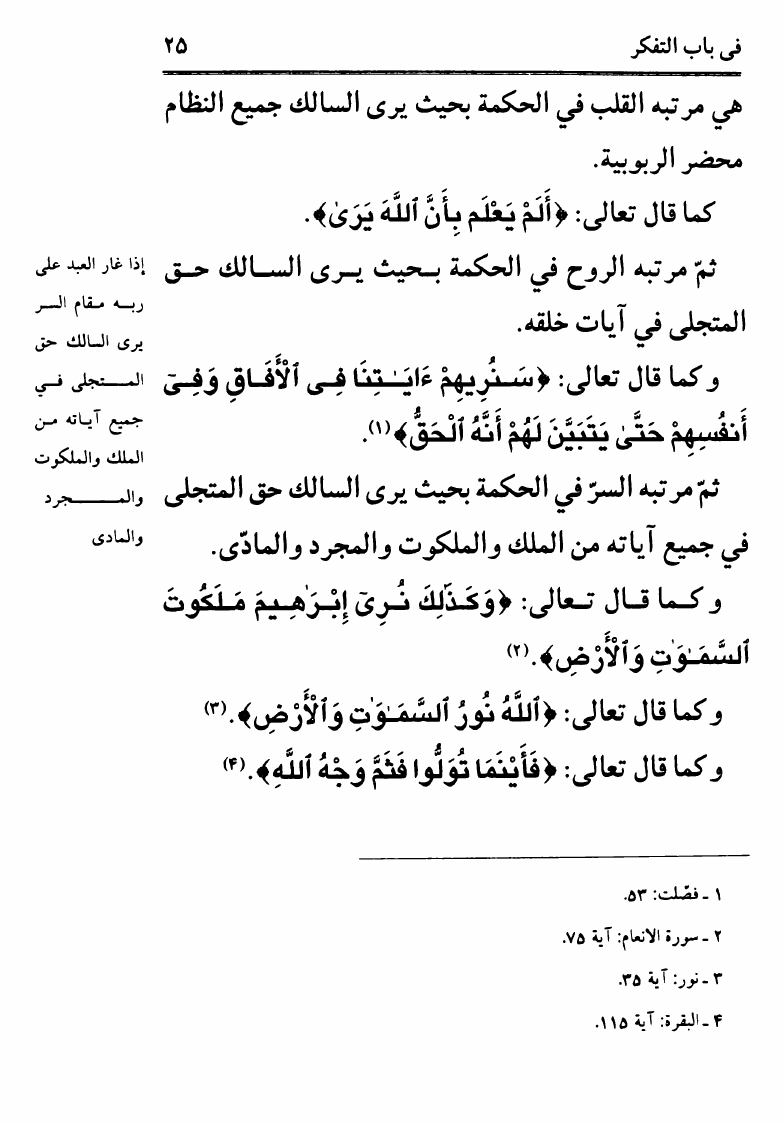 فی باب التفکر ۲۵
هي مرتبه القلب في الحكمة بحيث يرى السالك جميع النظام
محضر الربوبية.
كما قال تعالى: ﴿أَلَمْ يَعْلَم بِأَنَّ ٱللَّهَ يَرَىٰ﴾.
ثمّ مرتبه الروح في الحكمة بـحيث يـرى السـالك حـق
المتجلى في آيات خلقه.
و كما قال تعالى: ﴿سَـنُرِيهِمْ ءَايَـٰتِنَا فِـى ٱلْأَفَـاقِ وَفِـىٓ
أَنفُسِهِمْ حَتَّىٰ يَتَبَيَّنَ لَهُمْ أَنَّهُ ٱلْحَقُّ﴾(۱).
ثمّ مرتبه السرّ في الحكمة بحيث يرى السالك حق المتجلى
في جميع آياته من الملك والملكوت والمجرد والمادّى.
و كـما قـال تـعالى: ﴿وَكَـذَٰلِكَ نُـرِىٓ إِبْـرَٰهِـيمَ مَـلَكُوتَ
ٱلسَّمَـٰوَٰتِ وَٱلْأَرْضِ﴾.(۲)
و كما قال تعالى: ﴿ٱللَّهُ نُورُ ٱلسَّمَـٰوَٰتِ وَٱلْأَرْضِ﴾.(۳)
و كما قال تعالى: ﴿فَأَيْنَمَا تُوَلُّوا فَثَمَّ وَجْهُ ٱللَّهِ﴾.(۴)
إذا غار العبد على
ربـه مـقام السـر
يرى السالك حق
المـتجلى فـي
جميع آيـاته مـن
الملك والملكوت
والمـجرد
والمادى
۱ ـ فصّلت: ۵۳.
۲ ـ سورة الانعام: آية ۷۵.
۳ ـ نور: آية ۳۵.
۴ ـ البقرة: آية ۱۱۵.